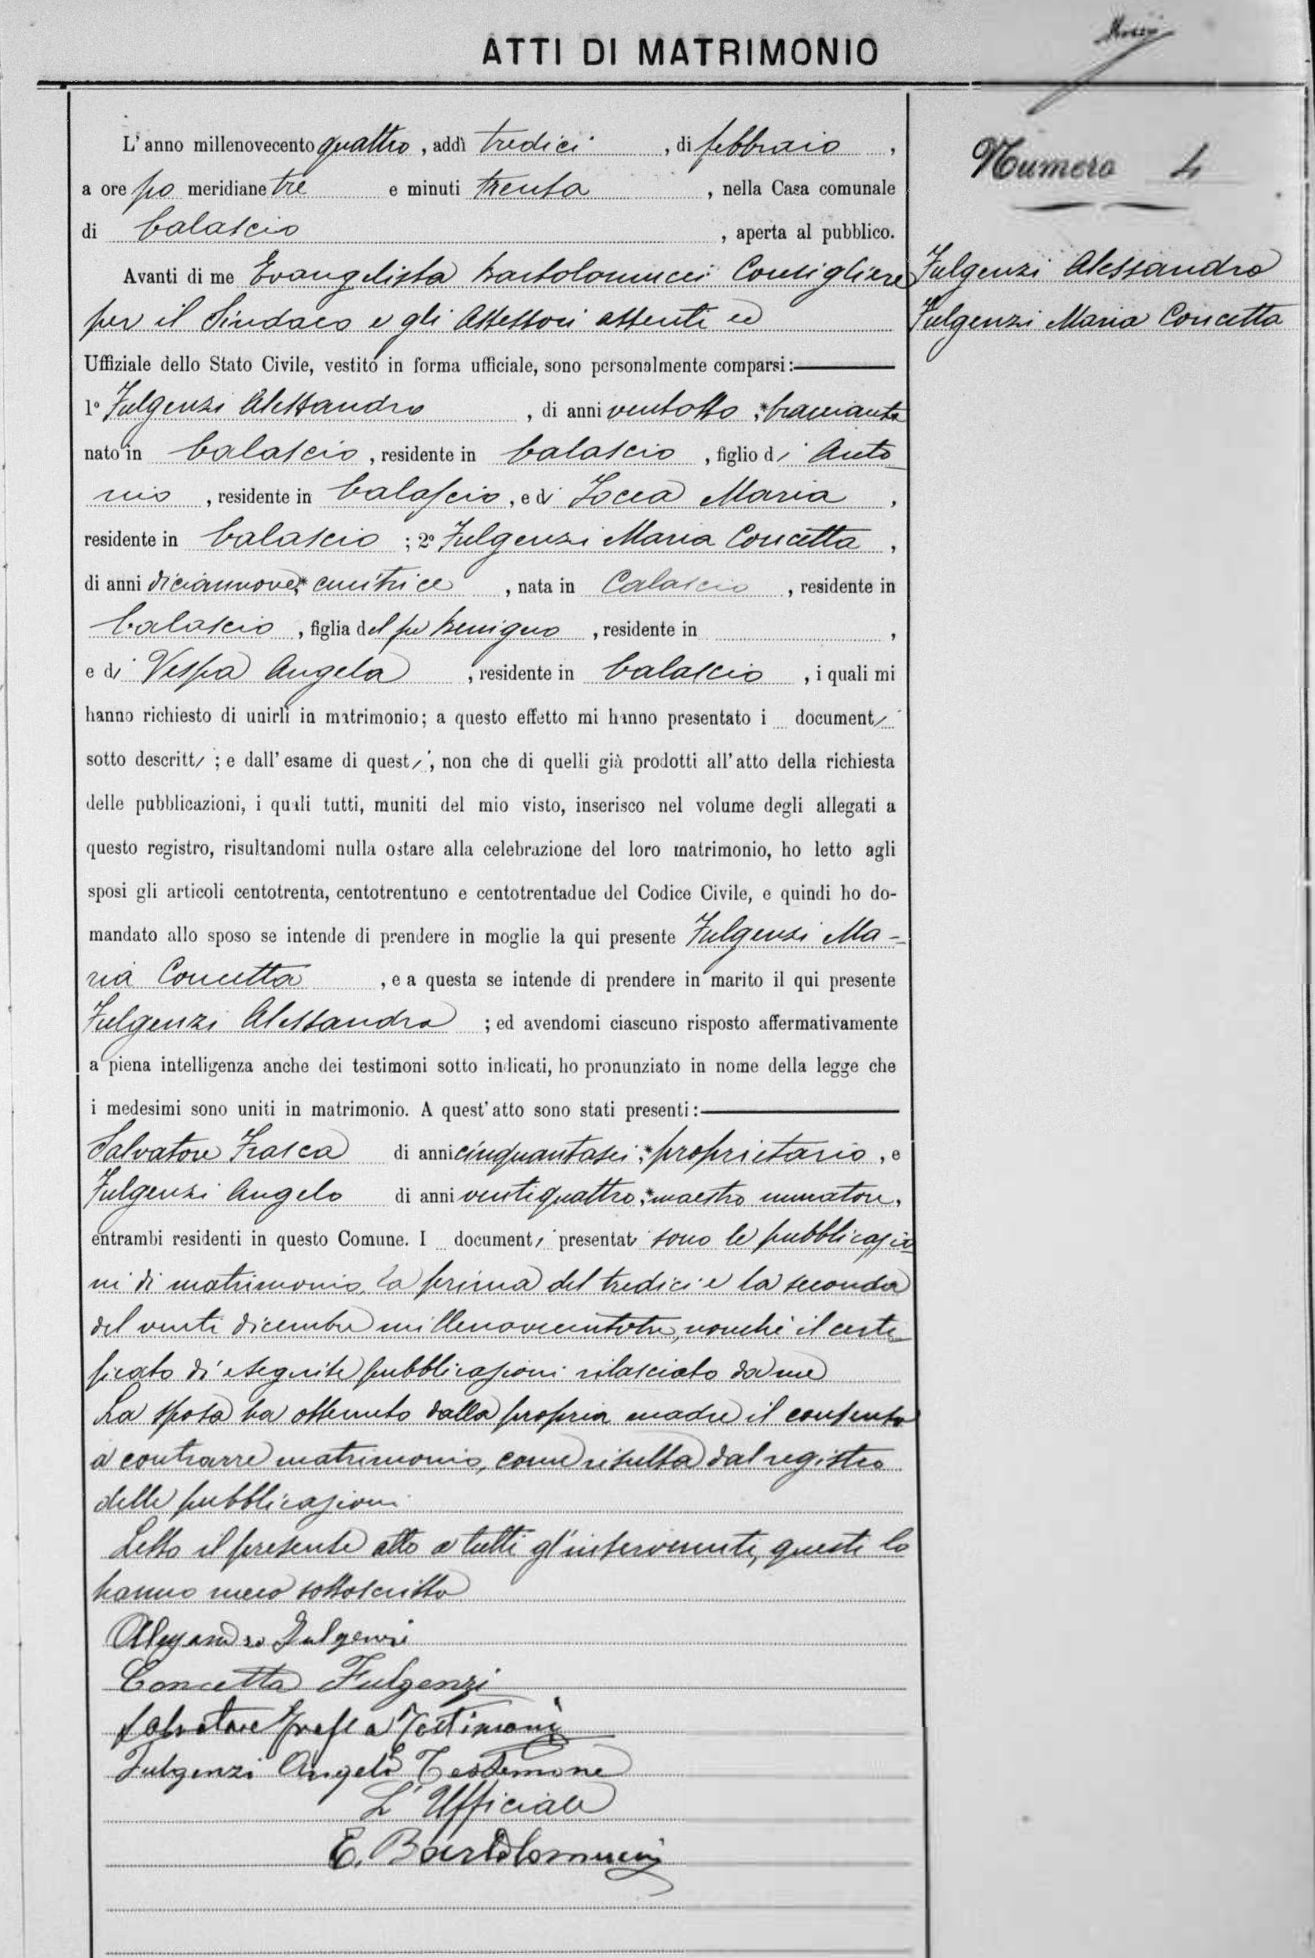 ATTI DI MATRIMONIO
Numero 4
Fulgenzi Alessandro
Fulgenzi Maria Concetta
L'anno millenovecento quattro, addì tredici, di febbraio,
a ore po meridiane tre e minuti trenta, nella Casa comunale
di Calascio, aperta al pubblico.
Avanti di me Evangelista Bartolomucci Consigliere
per il Sindaco e gli Assessori assenti ed
Uffiziale dello Stato Civile, vestito in forma ufficiale, sono personalmente comparsi:
1° Fulgenzi Alessandro, di anni ventotto, bracciante
nato in Calascio, residente in Calascio, figlio di Anto
nio, residente in Calascio, e di Zocca Maria,
residente in Calascio; 2° Fulgenzi Maria Concetta,
di anni diciannove, cucitrice, nata in Calascio, residente in
Calascio, figlia del fu Benigno, residente in ,
e di Vespa Angela, residente in Calascio, i quali mi
hanno richiesto di unirli in matrimonio; a questo effetto mi hanno presentato i documenti
sotto descritti; e dall'esame di questi, non che di quelli già prodotti all'atto della richiesta
delle pubblicazioni, i quali tutti, muniti del mio visto, inserisco nel volume degli allegati a
questo registro, risultandomi nulla ostare alla celebrazione del loro matrimonio, ho letto agli
sposi gli articoli centotrenta, centotrentuno e centotrentadue del Codice Civile, e quindi ho do-
mandato allo sposo se intende di prendere in moglie la qui presente Fulgenzi Ma-
ria Concetta, e a questa se intende di prendere in marito il qui presente
Fulgenzi Alessandro; ed avendomi ciascuno risposto affermativamente
a piena intelligenza anche dei testimoni sotto indicati, ho pronunziato in nome della legge che
i medesimi sono uniti in matrimonio. A quest'atto sono stati presenti:
Salvatore Frasca di anni cinquantasei, proprietario, e
Fulgenzi Angelo di anni ventiquattro, maestro muratore,
entrambi residenti in questo Comune. I documenti presentati sono le pubblicazio
ni di matrimonio, la prima del tredici e la seconda
del venti dicembre millenovecentotre, nonché il certi
ficato di eseguite pubblicazioni rilasciato da me
La sposa ha ottenuto dalla propria madre il consenso
a contrarre matrimonio, come risulta dal registro
delle pubblicazioni
Letto il presente atto a tutti gl'intervenuti, questi lo
hanno meco sottoscritto
Alessandro Fulgenzi
Concetta Fulgenzi
Salvatore Frasca Testimoni
Fulgenzi Angelo Testimone
L'Ufficiale
E. Bartolomucci